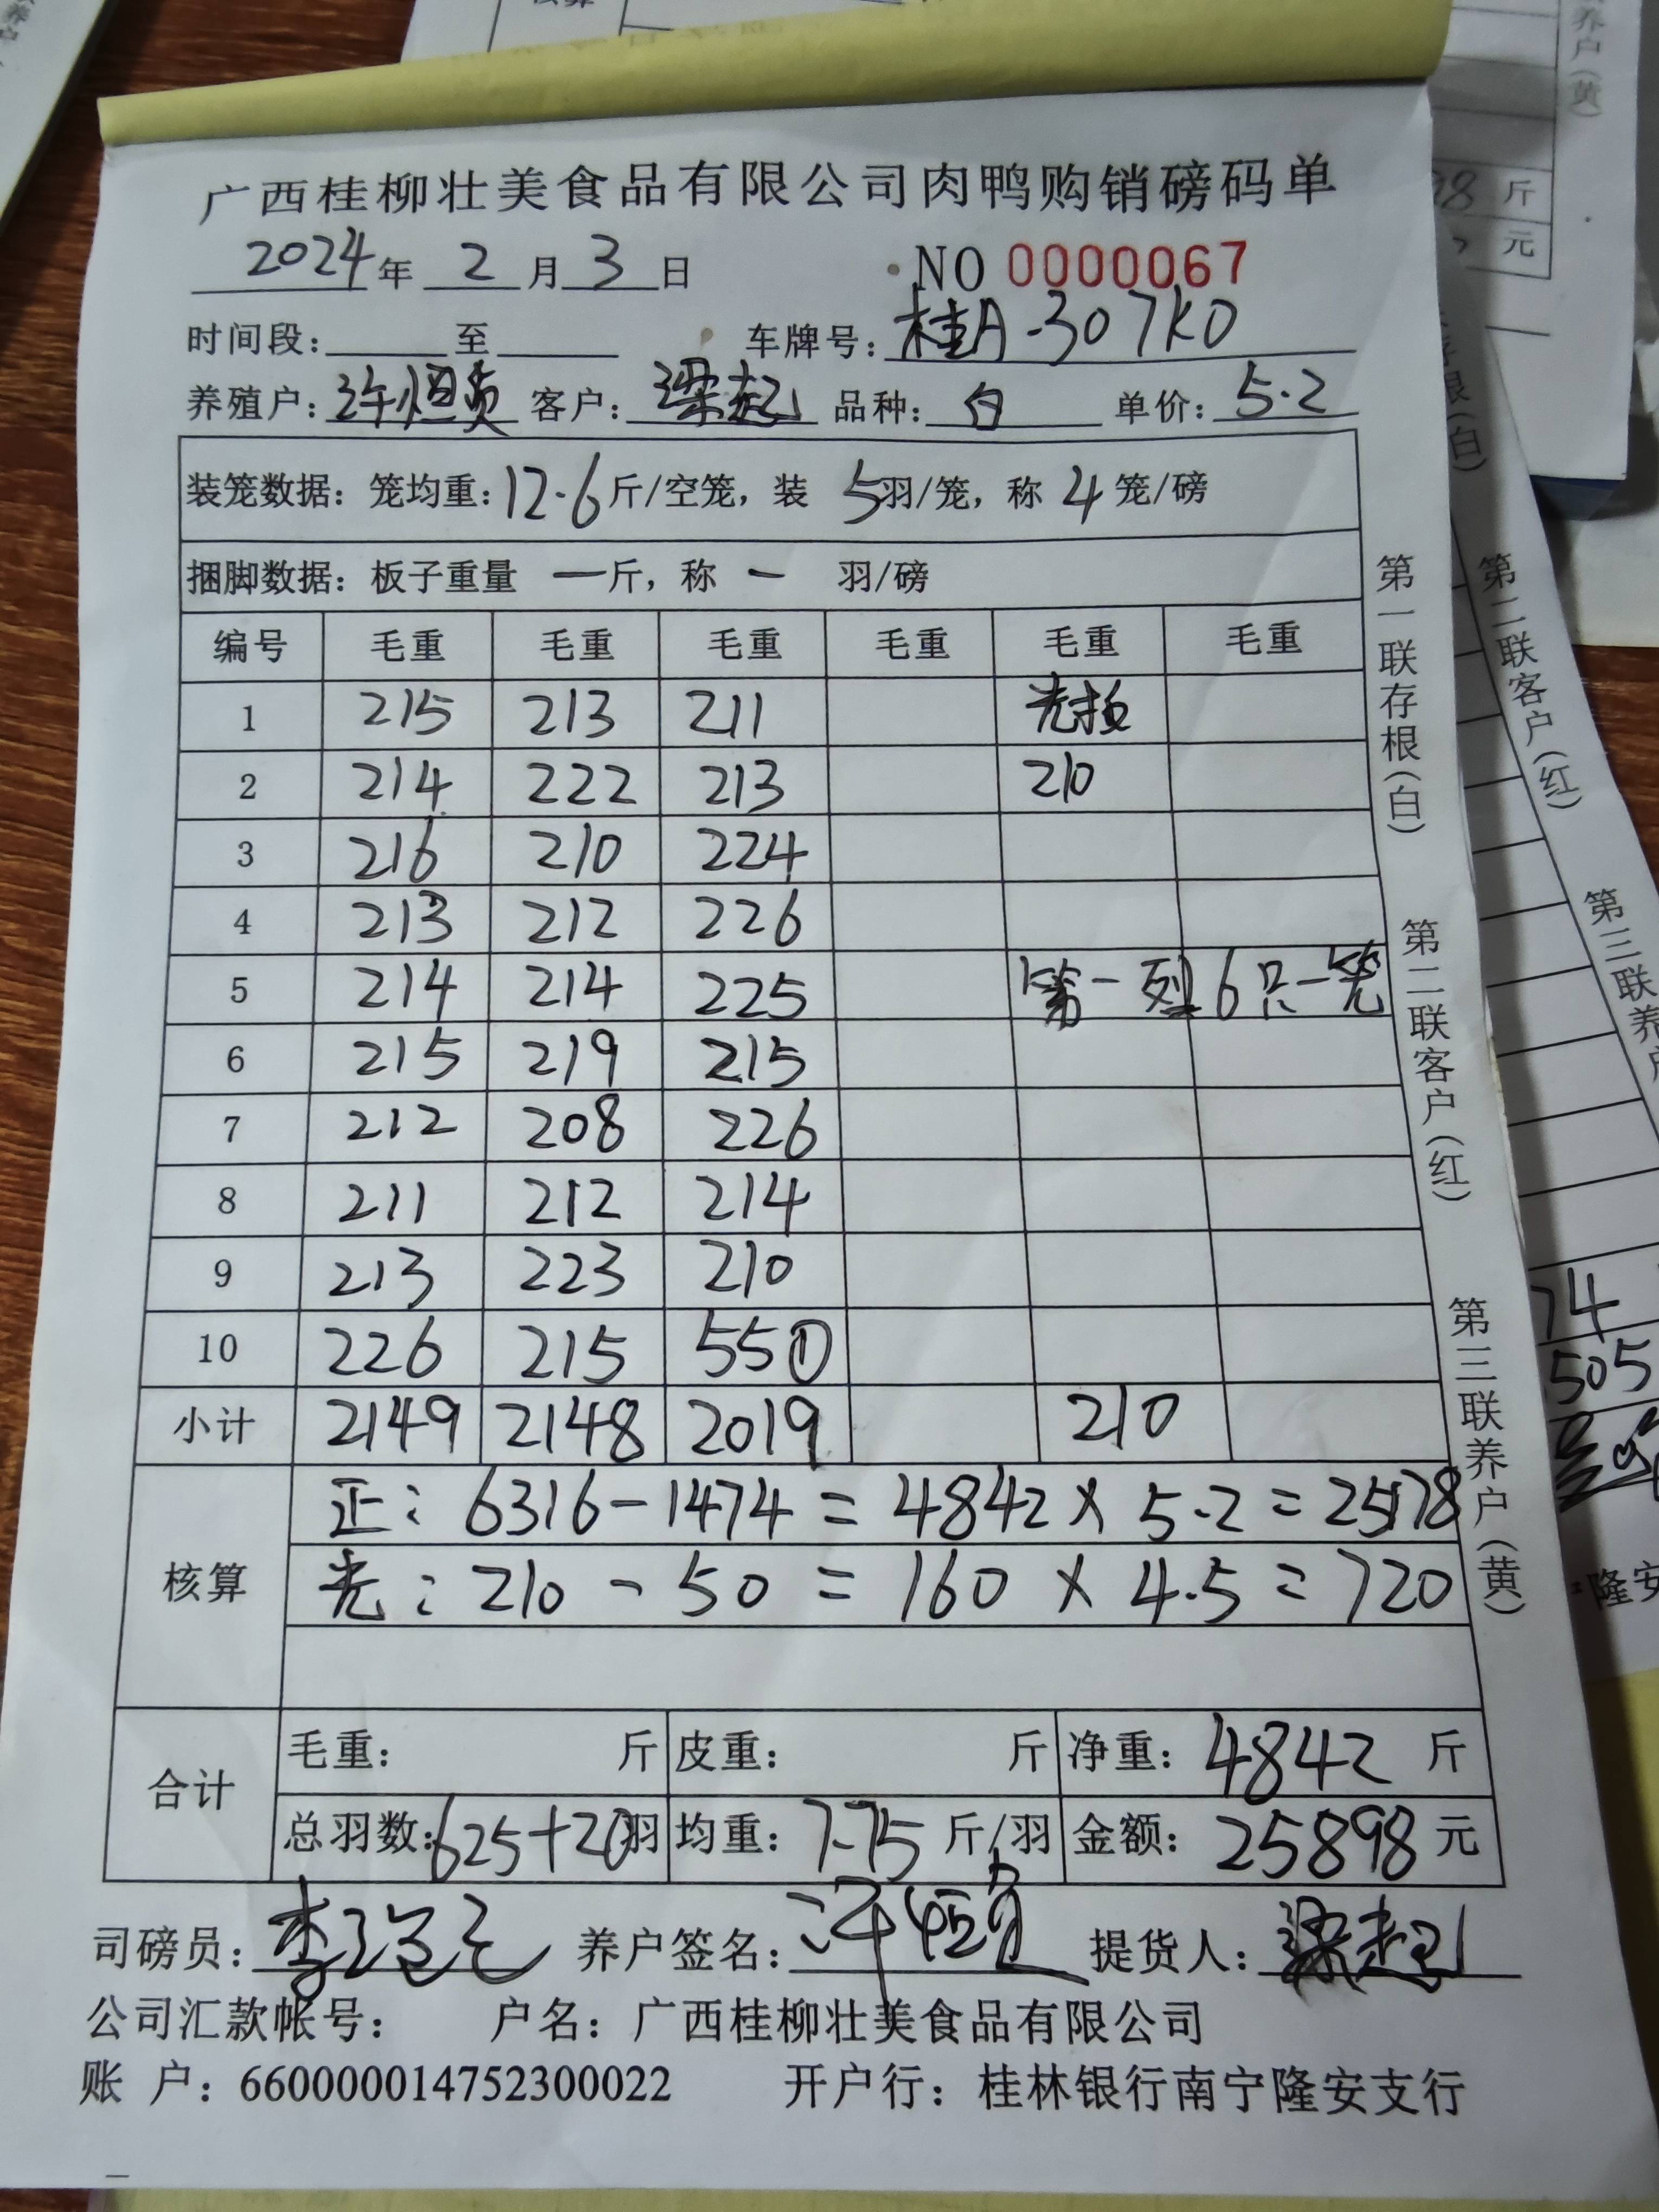 广西桂柳壮美食品有限公司肉鸭购销磅码单
2024年 2 月 3 日 NO 0000067
时间段: 至 车牌号: 桂A-307K0
养殖户: 许恒贞 客户: 梁起 品种: 白 单价: 5.2
装笼数据: 笼均重: 12.6 斤/空笼, 装 5 羽/笼, 称 4 笼/磅
捆脚数据: 板子重量 一 斤, 称 一 羽/磅
编号 毛重 毛重 毛重 毛重 毛重 毛重
1 215 213 211 光拍
2 214 222 213 210
3 216 210 224
4 213 212 226
5 214 214 225 第一列 6只一笼
6 215 219 215
7 212 208 226
8 211 212 214
9 213 223 210
10 226 215 55①
小计 2149 2148 2019 210
核算
正: 6316-1474=4842×5.2=25178
光: 210-50=160×4.5=720
合计
毛重: 斤 皮重: 斤 净重: 4842 斤
总羽数: 625+20羽 均重: 7.75 斤/羽 金额: 25898 元
司磅员: 养户签名: 提货人:
公司汇款帐号: 户名: 广西桂柳壮美食品有限公司
账 户: 660000014752300022 开户行: 桂林银行南宁隆安支行
第一联存根(白)
第二联客户(红)
第三联养户(黄)
第二联客户(红)
第三联养
养户(黄)
98 斤
元
74
505
隆安